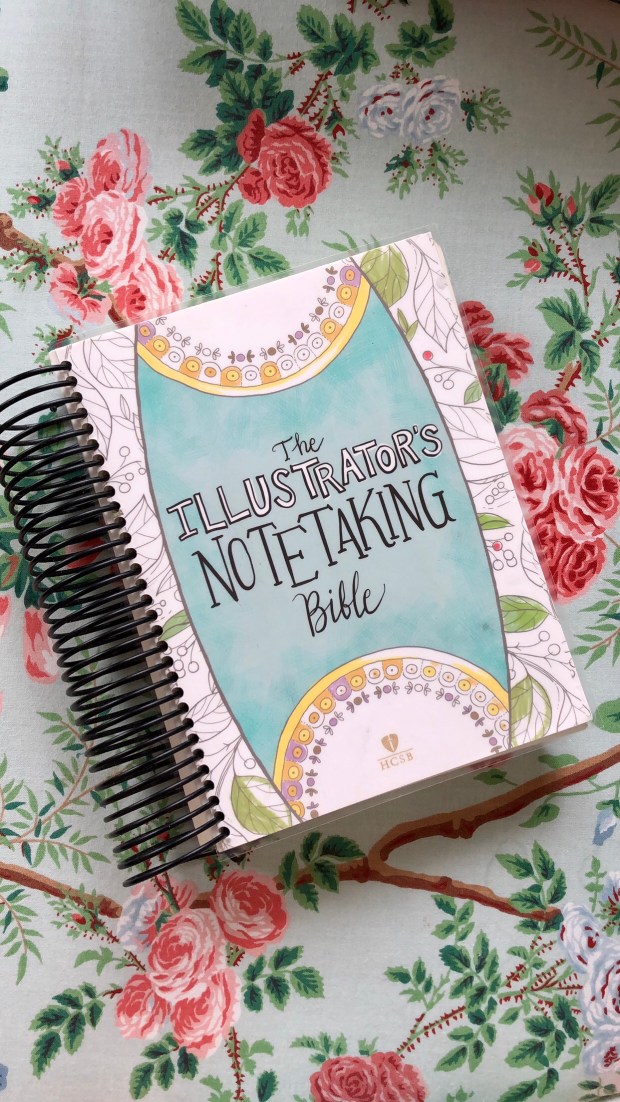 The
ILLUSTRATOR'S
NOTETAKING
Bible
HCSB